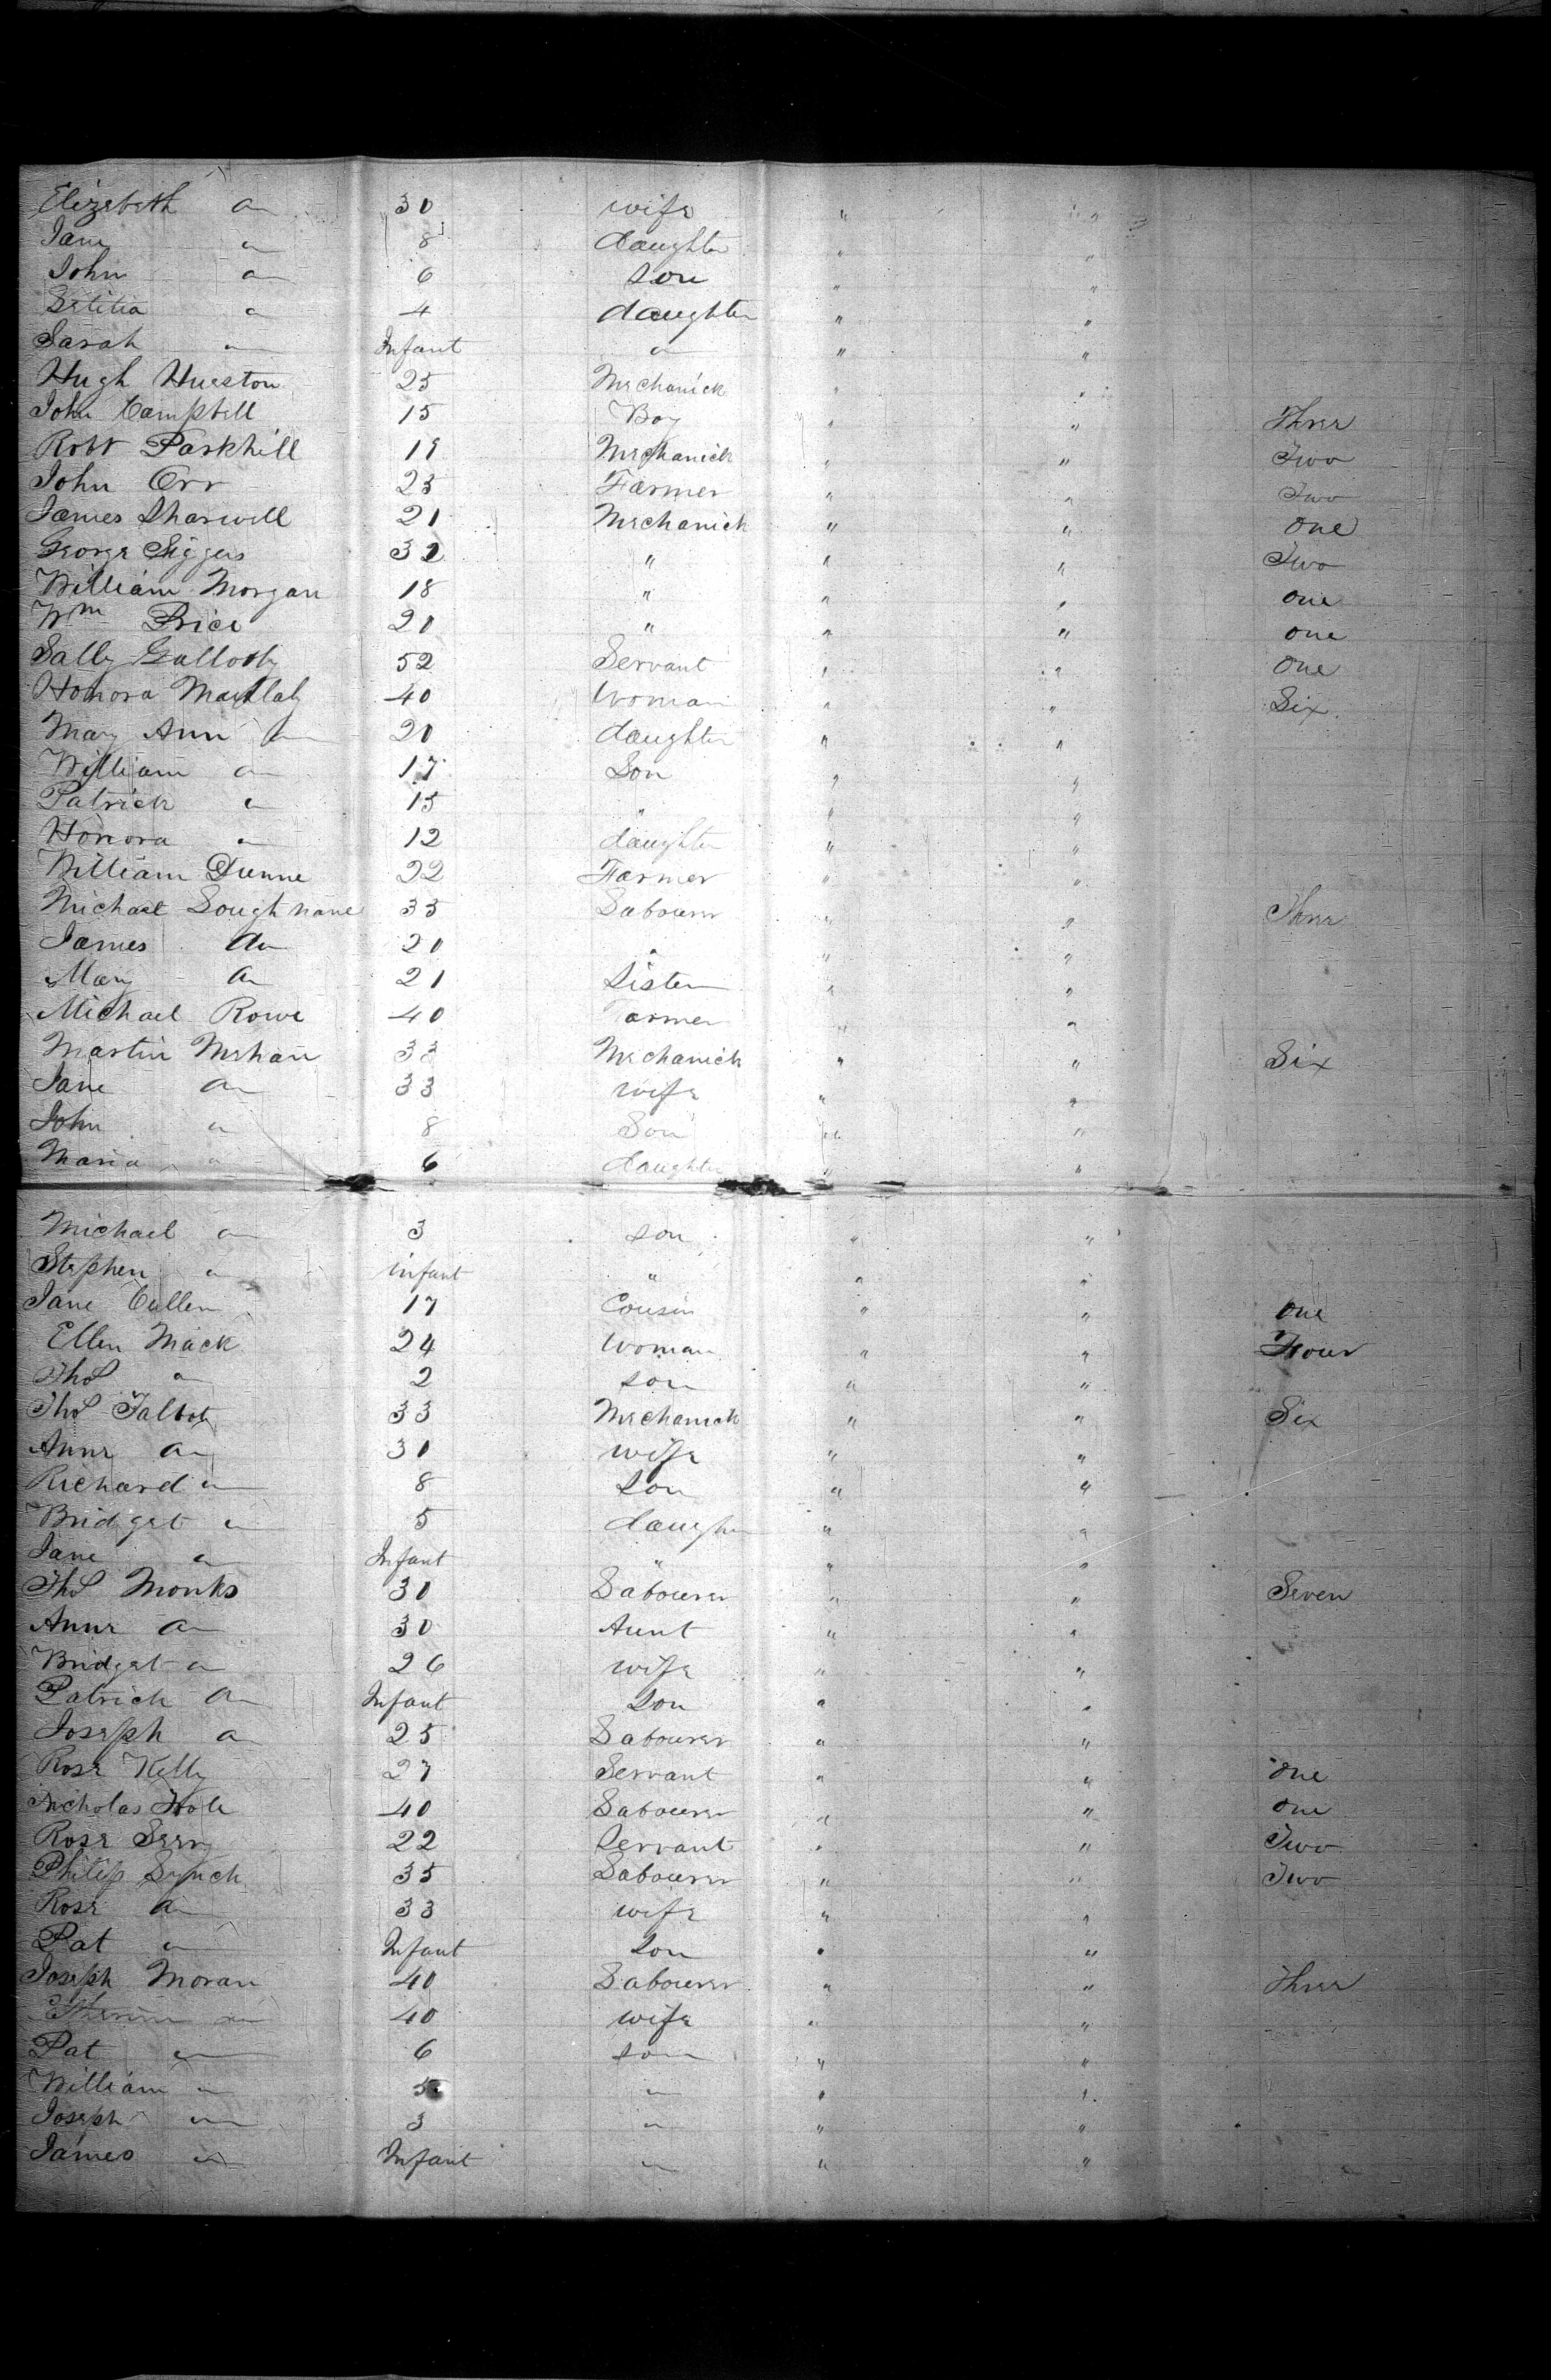 Elizabeth do 30 wife " "
Jane do 8 daughter " "
John do 6 son " "
Letitia do 4 daughter " "
Sarah do Infant do " "
Hugh Hueston 25 Mechanick " "
John Campbell 15 Boy " " Three
Robt Parkhill 19 Mechanick " " Two
John Orr 23 Farmer " " Two
James Sharwell 21 Mechanick " " one
George Siggers 32 " " " Two
William Morgan 18 " " " one
Wm Price 20 " " " one
Sally 52 Servant " " One
Honora 40 Woman " " Six
Mary Ann do 20 daughter " "
William do 17 Son " "
Patrick do 15 " " "
Honora do 12 daughter " "
William Dunne 22 Farmer " "
Michael Loughnane 35 Labourer " " Three
James do 20 " " "
Mary do 21 Sister " "
Michael Rowe 40 Farmer " "
Martin Mehan 33 Mechanick " " Six
Jane do 33 wife " "
John do 8 Son " "
Maria do 6 daughter " "
Michael do 3 son " "
Stephen do infant " " "
Jane Cullen 17 Cousin " " One
Ellen Mack 24 Woman " " Four
Thos do 2 son " "
Thos Talbot 33 Mechanick " " Six
Anne do 30 wife " "
Richard do 8 Son " "
Bridget do 5 daughter " "
Jane do Infant " " "
Thos Monks 30 Labourer " " Seven
Anne do 30 Aunt " "
Bridget do 26 wife " "
Patrick do Infant Son " "
Joseph do 25 Labourer " "
Rose Kelly 27 Servant " " One
Nicholas 40 Labourer " " One
Rose Seery 22 Servant " " Two
Philip Lynch 35 Labourer " " Two
Rose do 33 wife " "
Pat do Infant Son " "
Joseph Moran 40 Labourer " " Three
do 40 wife " "
Pat do 6 son " "
William do 5 do " "
Joseph do 3 do " "
James do Infant do " "